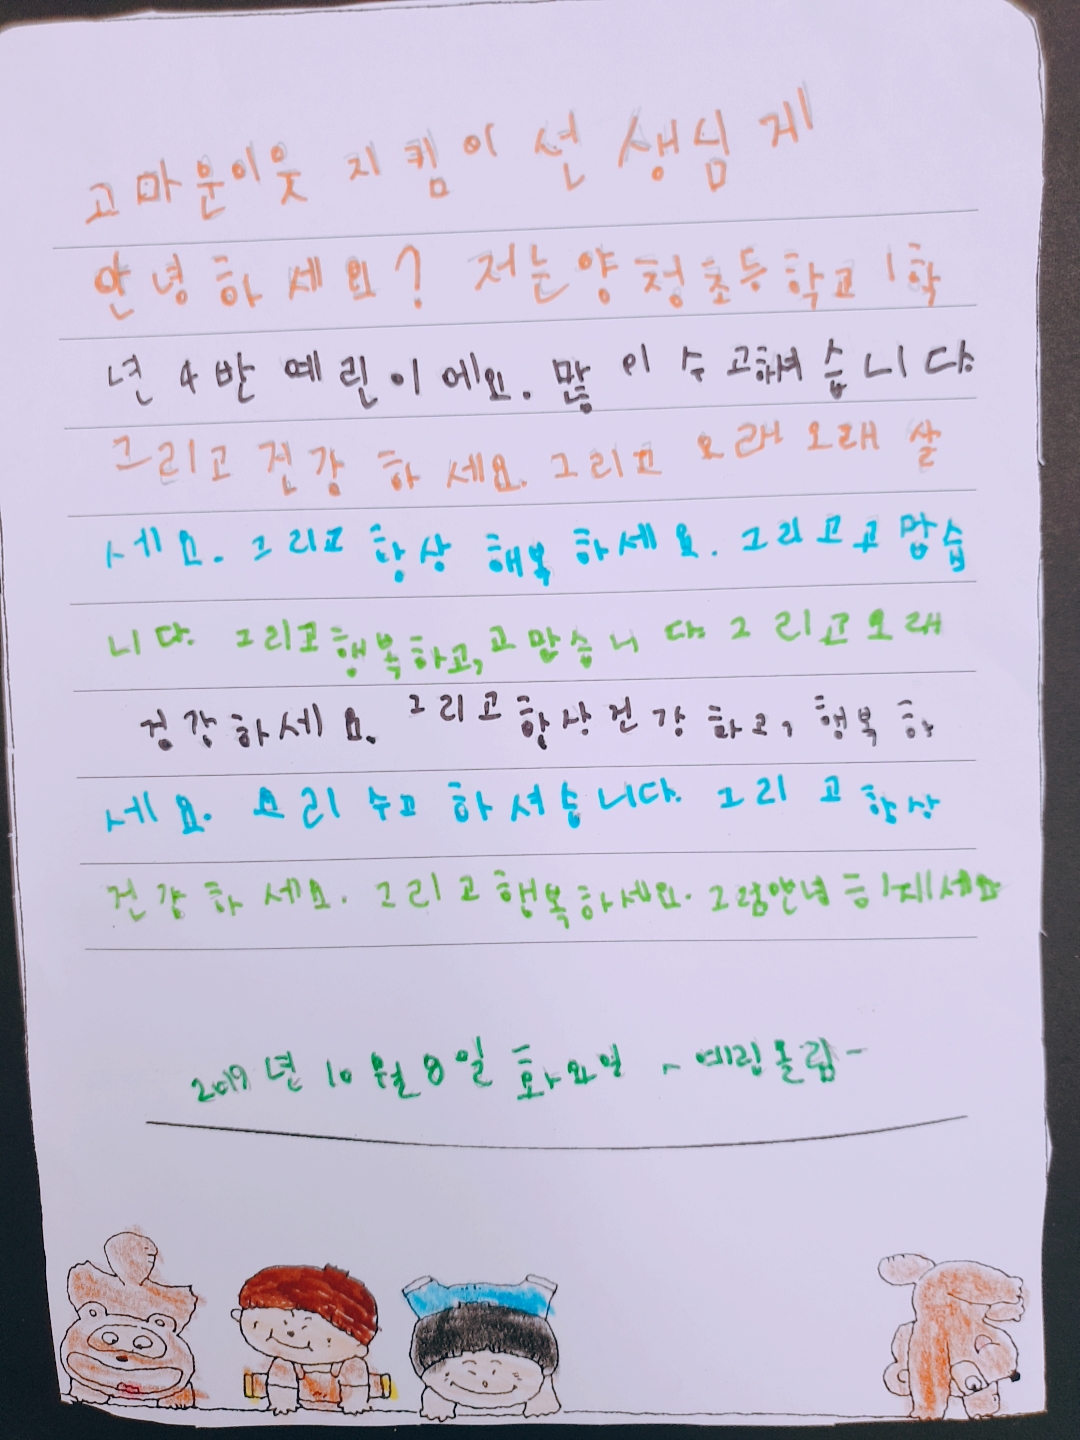 고마운이웃 지킴이 선생님 게
안녕하세요? 저는 양청초등학교 1학
년 4반 예린이에요. 많이 수고하셔습니다
그리고 건강하세요. 그리고 오래오래 살
세요. 그리고 항상 행복하세요. 그리고 고맙습
니다. 그리고 행복하고, 고맙습니다 그리고 오래
건강하세요. 그리고 항상 건강하고, 행복하
세요. 오리 수고하셔습니다. 그리고 항상
건강하세요. 그리고 행복하세요. 그럼 안녕히 계세요
2019년 10월 8일 화요일 - 예린올림 -